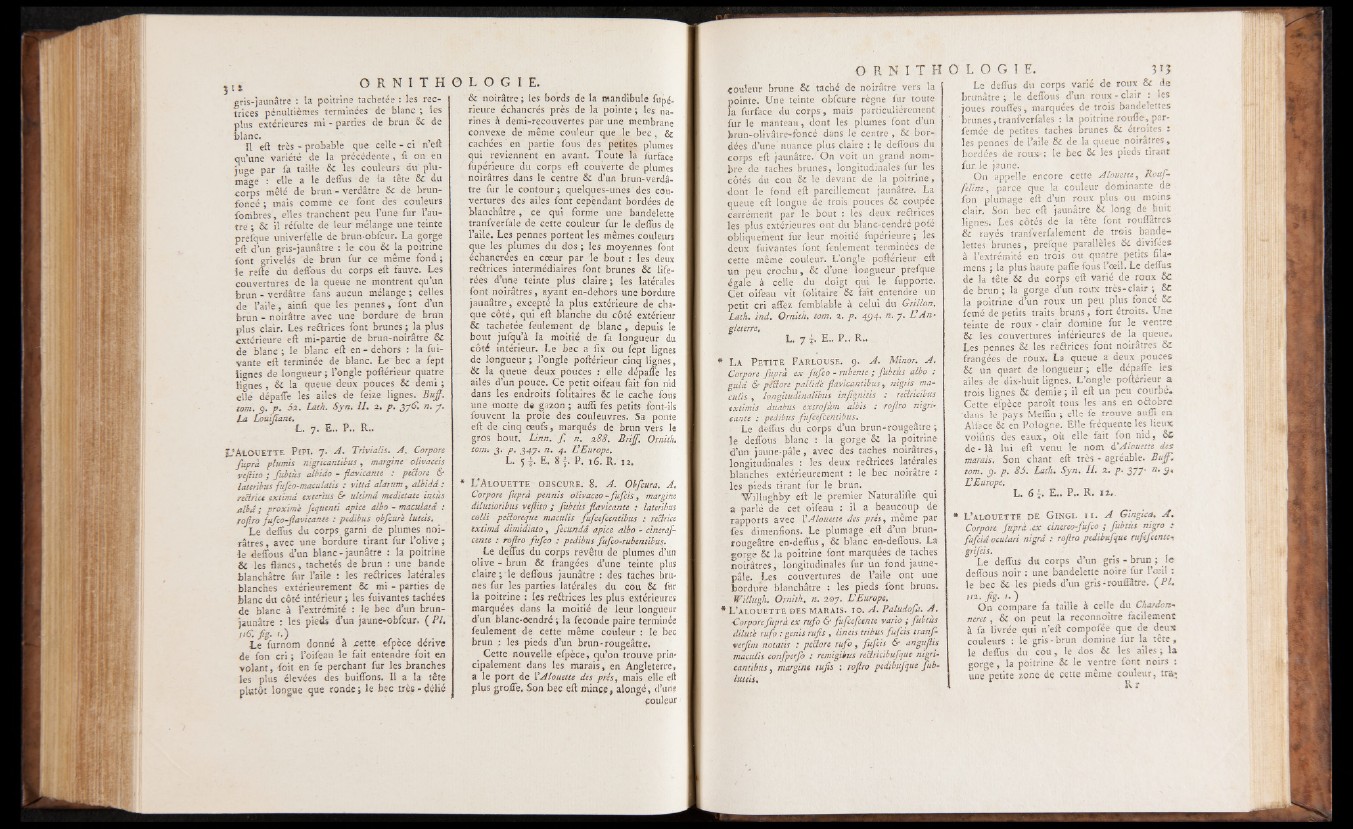 312
ORNITHOLOGIE.
gris-jaunâtre : la poitrine tachetée : les rec-
trices pénultièmes terminées de blanc ; les
plus extérieures mi - parties de brun & de
blanc.
Il eſt très - probable que celle - ci n'eſt
qu'une variété de la précédente, ſi on en
juge par ſa taille & les couleurs du plu-
mage : elle a le deſſus de la tête & du
corps mêlé de brun - verdâtre & de brun-
foncé ; mais comme ce ſont des couleurs
ſombres, elles tranchent peu l'une ſur l'au-
tre ; & il réſulte de leur mélange une teinte
preſque univerſelle de brun-obſcur. La gorge
eſt d'un gris-jaunâtre : le cou & la poitrine
ſont grivelés de brun ſur ce même fond ;
le reſte du deſſous du corps eſt fauve. Les
couvertures de la queue ne montrent qu'un
brun - verdâtre ſans aucun mélange ; celles
de l'aile, ainſi que les pennes, ſont d'un
brun - noirâtre avec une bordure de brun
plus clair. Les rectrices ſont brunes ; la plus
extérieure eſt mi-partie de brun-noirâtre &
de blanc ; le blanc eſt en - dehors : la ſui-
vante eſt terminée de blanc. Le bec a ſept
lignes de longueur ; l'ongle poſtérieur quatre
lignes, & la queue deux pouces & demi ;
elle dépaſſe les ailes de ſeize lignes. Buff.
tom. 9. p. 52. Lath. Syn. II. 2. p. 376. n. 7.
La Louiſiane.
L. 7. E.. P.. R..
L'ALOUETTE PIPI. 7. A. Trivialis. A. Corpore
ſuprà plumis nigricantibus, margine olivaceis
veſtito ; ſubtùs albido - flavicante : pectore &
lateribus fuſco-maculatis : vittâ alarum, albidâ :
rectrice extimâ exteriùs & ultimâ medietate intùs
albâ ; proximè ſequenti apice albo - maculatâ :
roſtro fuſco-flavicante : pedibus obſcurè luteis.
Le deſſus du corps garni de plumes noi-
râtres, avec une bordure tirant ſur l'olive ;
le deſſous d'un blanc - jaunâtre : la poitrine
& les flancs, tachetés de brun : une bande
blanchâtre ſur l'aile : les rectrices latérales
blanches extérieurement & mi - parties de
blanc du côté intérieur ; les ſuivantes tachées
de blanc à l'extrémité : le bec d'un brun-
jaunâtre : les pieds d'un jaune-obſcur. (Pl.
116. fig. 1.)
Le ſurnom donné à cette eſpèce dérive
de ſon cri ; l'oiſeau le fait entendre ſoit en
volant, ſoit en ſe perchant ſur les branches
les plus élevées des buiſſons. Il a la tête
plutôt longue que ronde ; le bec très - délié
& noirâtre ; les bords de la mandibule ſupé-
rieure échancrés près de la pointe ; les na-
rines à demi-recouvertes par une membrane
convexe de même couleur que le bec, &
cachées en partie ſous des petites plumes
qui reviennent en avant. Toute la ſurface
ſupérieure du corps eſt couverte de plumes
noirâtres dans le centre & d'un brun-verdâ-
tre ſur le contour ; quelques-unes des cou-
vertures des ailes ſont cependant bordées de
blanchâtre, ce qui forme une bandelette
tranſverſale de cette couleur ſur le deſſus de
l'aile. Les pennes portent les mêmes couleurs
que les plumes du dos ; les moyennes ſont
échancrées en cœur par le bout : les deux
rectrices intermédiaires ſont brunes & liſe-
rées d'une teinte plus claire ; les latérales
ſont noirâtres, ayant en-dehors une bordure
jaunâtre, excepté la plus extérieure de cha-
que côté, qui eſt blanche du côté extérieur
& tachetée ſeulement de blanc, depuis le
bout juſqu'à la moitié de ſa longueur du
côté intérieur. Le bec a ſix ou ſept lignes
de longueur ; l'ongle poſtérieur cinq lignes,
& la queue deux pouces : elle dépaſſe les
ailes d'un pouce. Ce petit oiſeau fait ſon nid
dans les endroits ſolitaires & le cache ſous
une motte de gazon ; auſſi ſes petits ſont-ils
ſouvent la proie des couleuvres. Sa ponte
eſt de cinq œufs, marqués de brun vers le
gros bout. Linn. ſ. n. 288. Briſſ. Ornith.
tom. 3. p. 347. n. 4. L'Europe.
L. 5 ½. E. 8 ¾. P. 16. R. 12.
* L'ALOUETTE OBSCURE. 8. A. Obſcura. A.
Corpore ſuprà pennis olivaceo - fuſcis, margine
dilutioribus veſtito ; ſubtùs flavicante : lateribus
colli pectoreque maculis fuſceſcentibus : rectrice
extimâ dimidiato, ſecundâ apice albo - cineraſ-
cente : roſtro fuſco : pedibus fuſco-rubentibus.
Le deſſus du corps revêtu de plumes d'un
olive - brun & frangées d'une teinte plus
claire ; le deſſous jaunâtre : des taches bru-
nes ſur les parties latérales du cou & ſur
la poitrine : les rectrices les plus extérieures
marquées dans la moitié de leur longueur
d'un blanc-cendré ; la ſeconde paire terminée
ſeulement de cette même couleur : le bec
brun : les pieds d'un brun-rougeâtre.
Cette nouvelle eſpèce, qu'on trouve prin-
cipalement dans les marais, en Angleterre,
a le port de l'Alouette des prés, mais elle eſt
plus groſſe. Son bec eſt mince, alongé, d'une
couleur
ORNITHOLOGIE.
313
couleur brune & taché de noirâtre vers la
pointe. Une teinte obſcure règne ſur toute
la ſurface du corps, mais particulièrement
ſur le manteau, dont les plumes ſont d'un
brun-olivâtre-foncé dans le centre, & bor-
dées d'une nuance plus claire : le deſſous du
corps eſt jaunâtre. On voit un grand nom-
bre de taches brunes, longitudinales ſur les
côtés du cou & le devant de la poitrine,
dont le fond eſt pareillement jaunâtre. La
queue eſt longue de trois pouces & coupée
carrément par le bout : les deux rectrices
les plus extérieures ont du blanc-cendré poſé
obliquement ſur leur moitié ſupérieure ; les
deux ſuivantes ſont ſeulement terminées de
cette même couleur. L'ongle poſtérieur eſt
un peu crochu, & d'une longueur preſque
égale à celle du doigt qui le ſupporte.
Cet oiſeau vit ſolitaire & fait entendre un
petit cri aſſez ſemblable à celui du Grillon.
Lath. ind. Ornith. tom. 2. p. 494. n. 7. L'An-
gleterre.
L. 7 ½. E.. P.. R..
* LA PETITE FARLOUSE. 9. A. Minor. A.
Corpore ſuprà ex fuſco - rubente ; ſubtùs albo :
gulâ & pectore pallidè flavicantibus, nigris ma-
culis, longitudinalibus inſignitis : rectricibus
extimis duabus extrorſùm albis : roſtro nigri-
cante : pedibus fuſceſcentibus.
Le deſſus du corps d'un brun-rougeâtre ;
le deſſous blanc : la gorge & la poitrine
d'un jaune-pâle, avec des taches noirâtres,
longitudinales : les deux rectrices latérales
blanches extérieurement : le bec noirâtre :
les pieds tirant ſur le brun.
Willughby eſt le premier Naturaliſte qui
a parlé de cet oiſeau : il a beaucoup de
rapports avec l'Alouette des prés, même par
ſes dimenſions. Le plumage eſt d'un brun-
rougeâtre en-deſſus, & blanc en-deſſous. La
gorge & la poitrine ſont marquées de taches
noirâtres, longitudinales ſur un fond jaune-
pâle. Les couvertures de l'aile ont une
bordure blanchâtre : les pieds ſont bruns.
Willugh. Ornith. n. 207. L'Europe.
* L'ALOUETTE DES MARAIS. 10. A. Paludoſa. A.
Corpore ſuprà ex rufo & fuſceſcente vario ; ſubtùs
dilutè rufo : genis rufis, lineis tribus fuſcis tranſ-
verſim notatis : pectore rufo, fuſcis & anguſtis
maculis conſperſo : remigibus rectricibuſque nigri-
cantibus, margine rufis : roſtro pedibuſque ſub-
luteis.
Le deſſus du corps varié de roux & de
brunâtre ; le deſſous d'un roux - clair : les
joues rouſſes, marquées de trois bandelettes
brunes, tranſverſales : la poitrine rouſſe, par-
ſemée de petites taches brunes & étroites :
les pennes de l'aile & de la queue noirâtres,
bordées de roux : le bec & les pieds tirant
ſur le jaune.
On appelle encore cette Alouette, Rouſ-
ſeline, parce que la couleur dominante de
ſon plumage eſt d'un roux plus ou moins
clair. Son bec eſt jaunâtre & long de huit
lignes. Les côtés de la tête ſont rouſſâtres
& rayés tranſverſalement de trois bande-
lettes brunes, preſque parallèles & diviſées
à l'extrémité en trois ou quatre petits fila-
mens ; la plus haute paſſe ſous l'œil. Le deſſus
de la tête & du corps eſt varié de roux &
de brun ; la gorge d'un roux très-clair ; &
la poitrine d'un roux un peu plus foncé &
ſemé de petits traits bruns, fort étroits. Une
teinte de roux - clair domine ſur le ventre
& les couvertures inférieures de la queue.
Les pennes & les rectrices ſont noirâtres &
frangées de roux. La queue a deux pouces
& un quart de longueur ; elle dépaſſe les
ailes de dix-huit lignes. L'ongle poſtérieur a
trois lignes & demie ; il eſt un peu courbé.
Cette eſpèce paroît tous les ans en octobre
dans le pays Meſſin ; elle ſe trouve auſſi en
Alſace & en Pologne. Elle fréquente les lieux
voiſins des eaux, où elle fait ſon nid, &
de - là lui eſt venu le nom d'Alouette des
marais. Son chant eſt très - agréable. Buff.
tom. 9. p. 85. Lath. Syn. II. 2. p. 377. n. 9.
L'Europe.
L. 6 ½. E.. P.. R. 12.
* L'ALOUETTE DE GINGI. 11. A Gingica. A.
Corpore ſuprà ex cinereo-fuſco ; ſubtùs nigro :
faſciâ oculari nigrâ : roſtro pedibuſque rufeſcente-
griſeis.
Le deſſus du corps d'un gris - brun ; le
deſſous noir : une bandelette noire ſur l'œil :
le bec & les pieds d'un gris-rouſſâtre. (Pl.
112. fig. 1.)
On compare ſa taille à celle du Chardon-
neret, & on peut la reconnoître facilement
à ſa livrée qui n'eſt compoſée que de deux
couleurs : le gris - brun domine ſur la tête,
le deſſus du cou, le dos & les ailes ; la
gorge, la poitrine & le ventre ſont noirs :
une petite zone de cette même couleur, tra-
R r